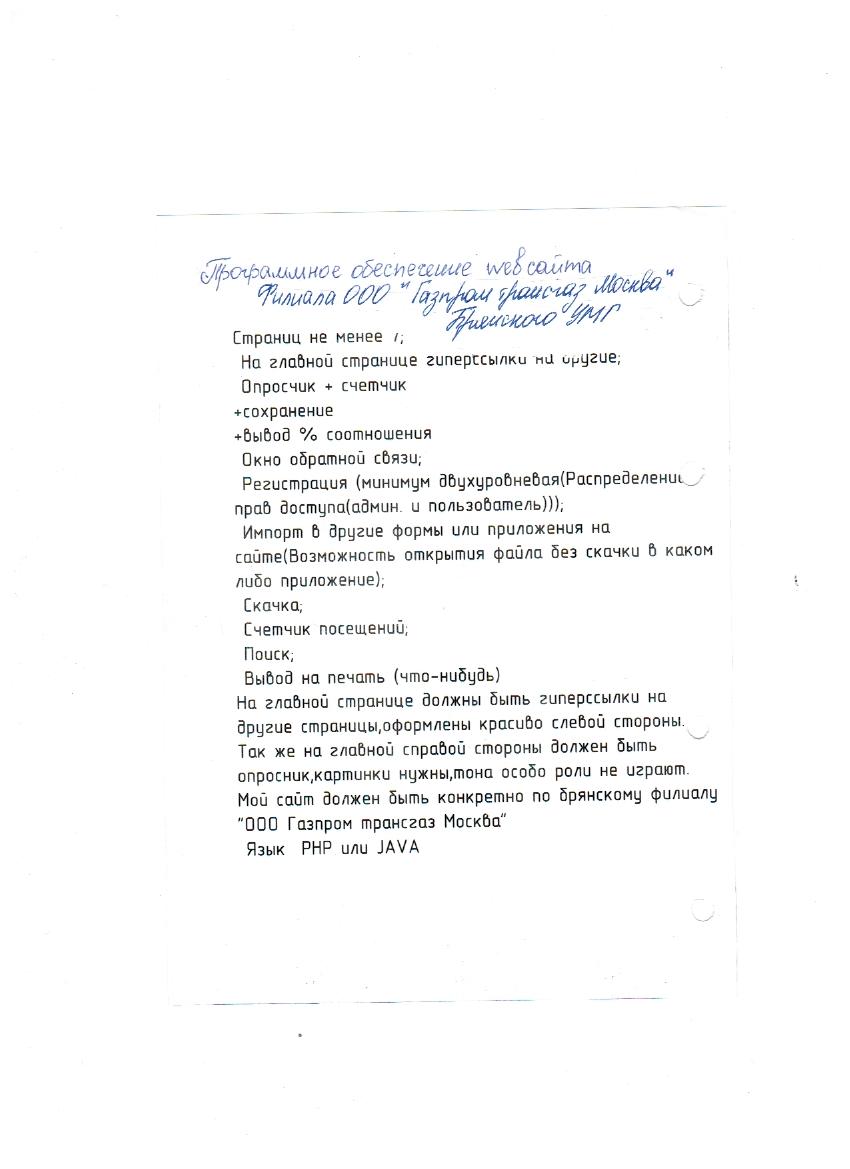 Программное обеспечение web сайта
Филиала ООО "Газпром трансгаз Москва"
Брянского УМГ
Страниц не менее
На главной странице гиперссылки на другие;
Опросчик + счетчик
+сохранение
+вывод % соотношения
Окно обратной связи;
Регистрация (минимум двухуровневая(Распределение
прав доступа(админ. и пользователь)));
Импорт в другие формы или приложения на
сайте(Возможность открытия файла без скачки в каком
либо приложение);
Скачка;
Счетчик посещений;
Поиск;
Вывод на печать (что-нибудь)
На главной странице должны быть гиперссылки на
другие страницы,оформлены красиво слевой стороны.
Так же на главной справой стороны должен быть
опросник,картинки нужны,тона особо роли не играют.
Мой сайт должен быть конкретно по брянскому филиалу
"ООО Газпром трансгаз Москва"
Язык PHP или JAVA